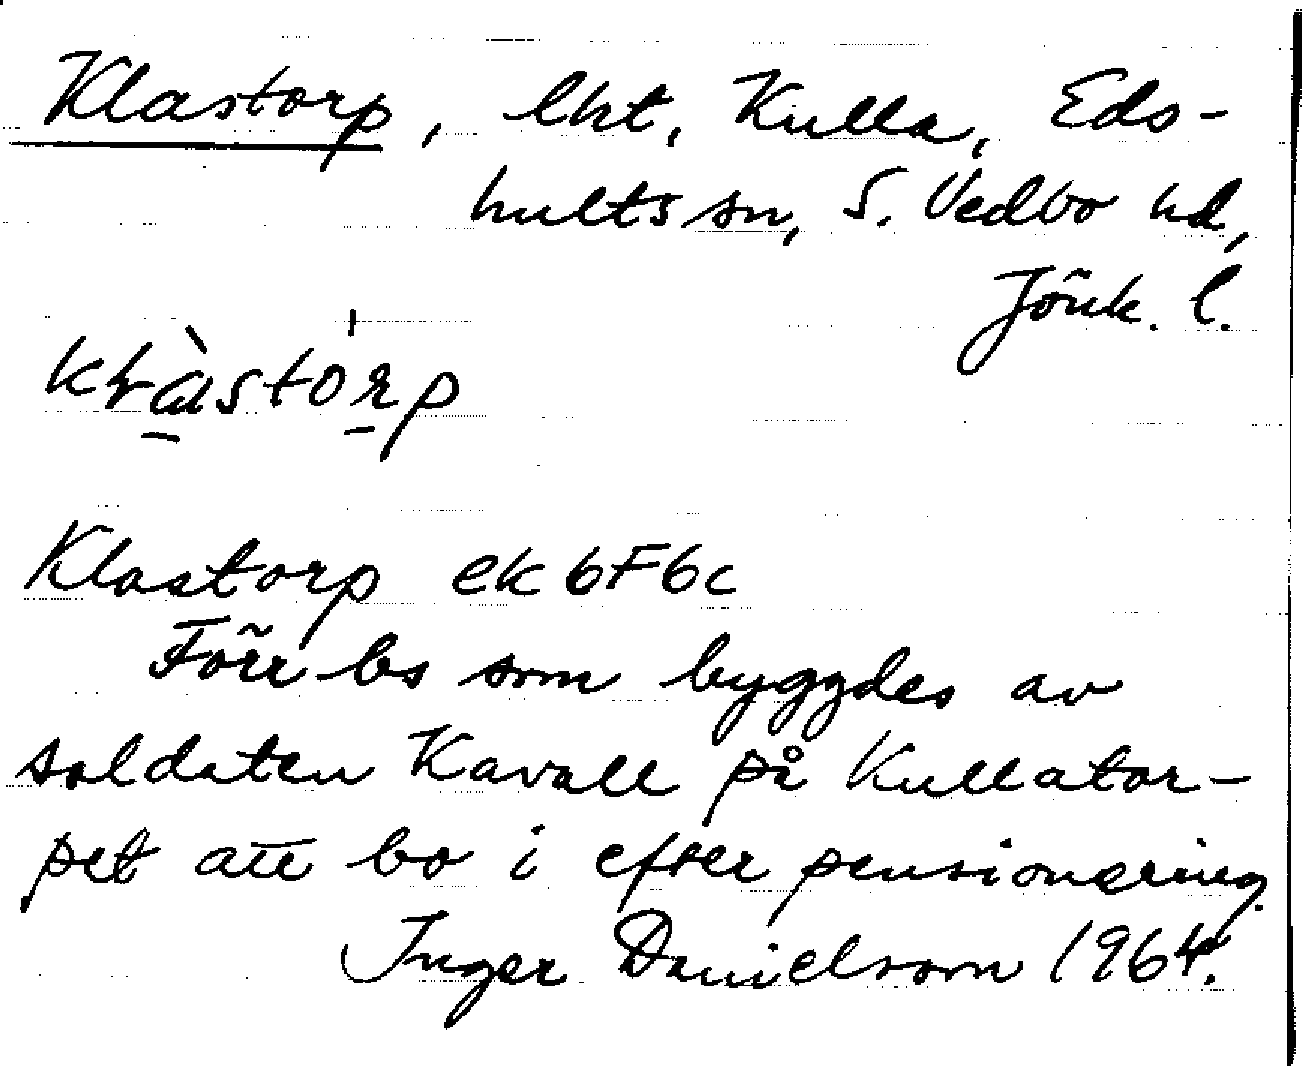 Klastorp, lht, Kulla, Eds-
hults sn, S. Vedbo hd,
Jönk. l.
Klastorp ek 6F6c
Förr bs som byggdes av
soldaten Kavall på Kullator-
pet att bo i efter pensionering.
Inger Danielsson 1964.